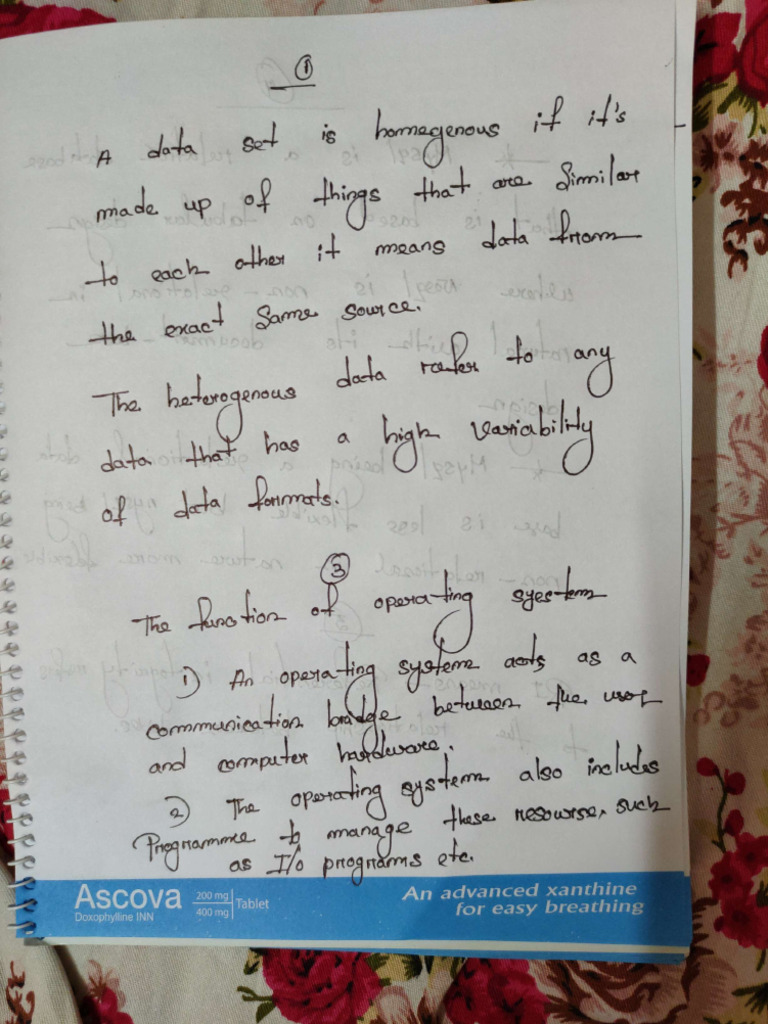 ①
A data set is homogenous if it's
made up of things that are Similar
to each other it means data from
the exact Same source.
The heterogenous data refer to any
data that has a high variability
of data formats.
③
The function of operating syestem
1) An operating system acts as a
communication bridge between the user
and computer hardware.
2) The operating system also includes
Programme to manage these resourse, such
as I/o programs etc.
Ascova 200 mg 400 mg Tablet
Doxophylline INN
An advanced xanthine
for easy breathing